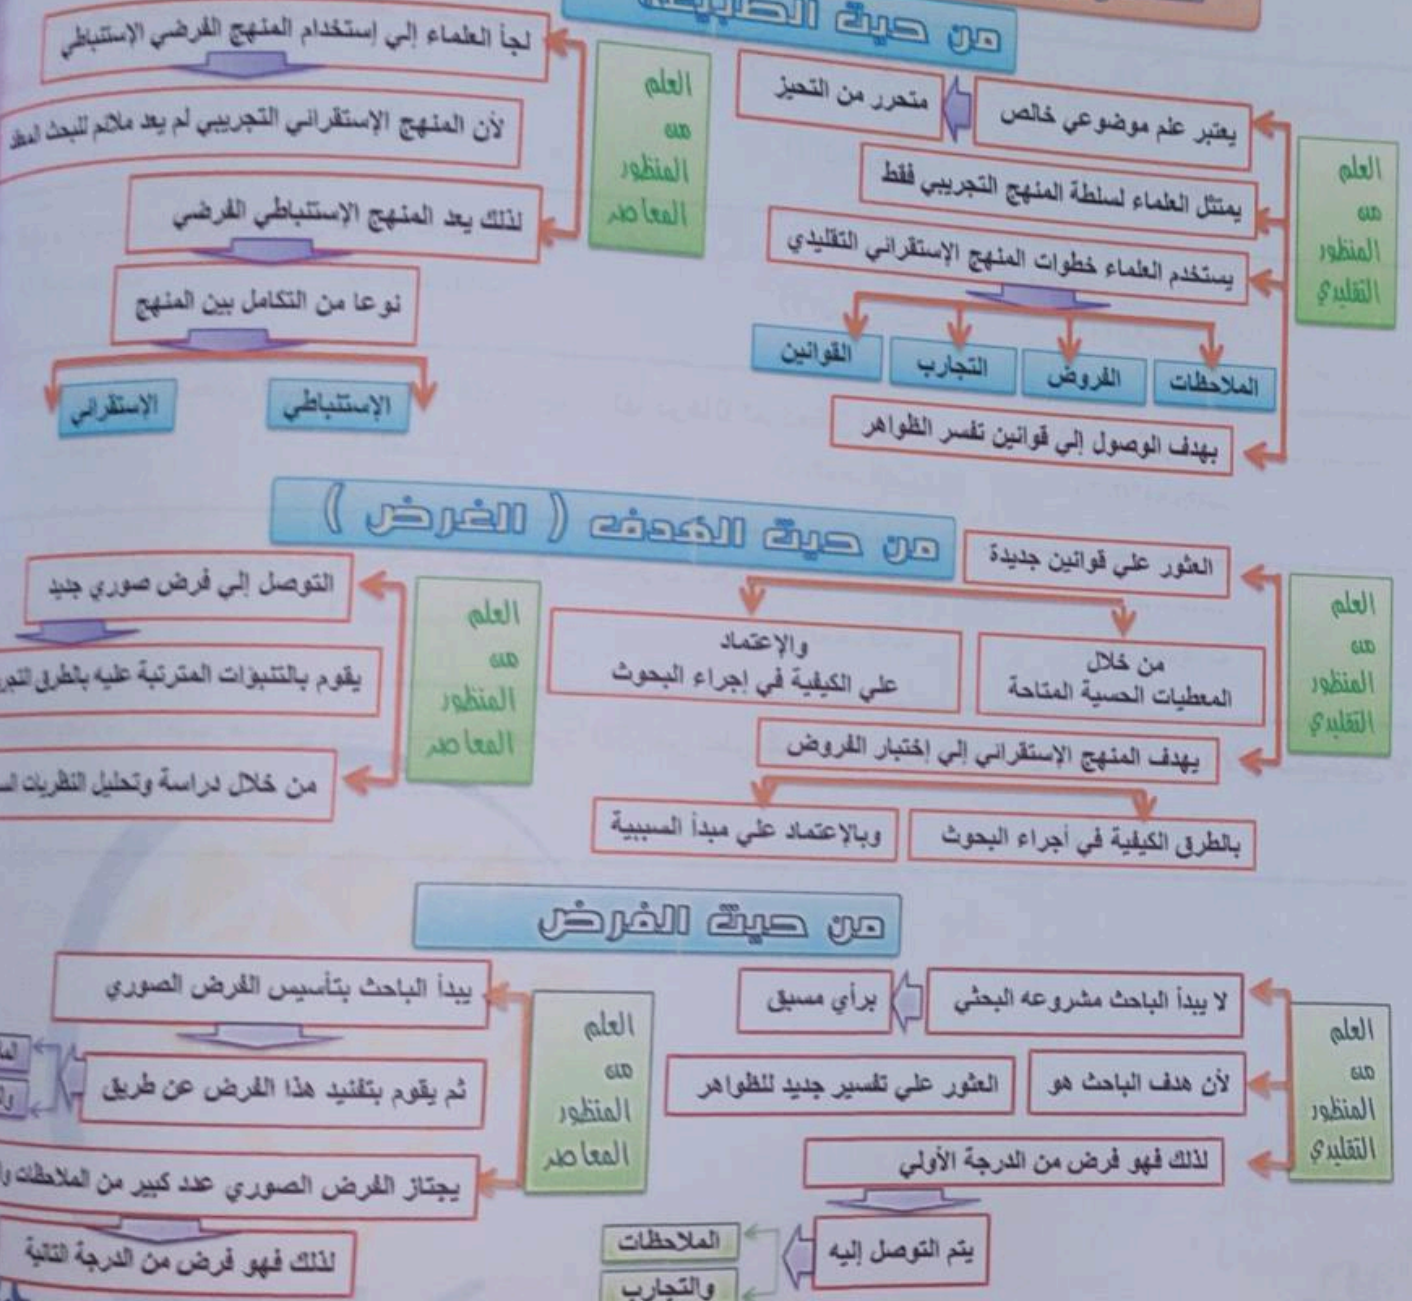 من حيث الطبيعة
العلم
من
المنظور
التقليدي
يعتبر علم موضوعي خالص
متحرر من التحيز
يمتثل العلماء لسلطة المنهج التجريبي فقط
يستخدم العلماء خطوات المنهج الإستقرائي التقليدي
الملاحظات
الفروض
التجارب
القوانين
بهدف الوصول إلي قوانين تفسر الظواهر
العلم
من
المنظور
المعاصر
لجأ العلماء إلي إستخدام المنهج الفرضي الإستنباطي
لأن المنهج الإستقرائي التجريبي لم يعد ملائم للبحث
لذلك يعد المنهج الإستنباطي الفرضي
نوعا من التكامل بين المنهج
الإستنباطي
الإستقرائي
من حيث الهدف ( الغرض )
العلم
من
المنظور
التقليدي
العثور علي قوانين جديدة
من خلال
المعطيات الحسية المتاحة
والإعتماد
علي الكيفية في إجراء البحوث
يهدف المنهج الإستقرائي إلي إختبار الفروض
بالطرق الكيفية في أجراء البحوث
وبالإعتماد علي مبدأ السببية
العلم
من
المنظور
المعاصر
التوصل إلي فرض صوري جديد
يقوم بالتنبؤات المترتبة عليه بالطرق
من خلال دراسة وتحليل النظريات
من حيث الفرض
العلم
من
المنظور
التقليدي
لا يبدأ الباحث مشروعه البحثي
برأي مسبق
لأن هدف الباحث هو
العثور علي تفسير جديد للظواهر
لذلك فهو فرض من الدرجة الأولي
يتم التوصل إليه
الملاحظات
والتجارب
العلم
من
المنظور
المعاصر
يبدأ الباحث بتأسيس الفرض الصوري
ثم يقوم بتفنيد هذا الفرض عن طريق
يجتاز الفرض الصوري عدد كبير من الملاحظات
لذلك فهو فرض من الدرجة الثانية